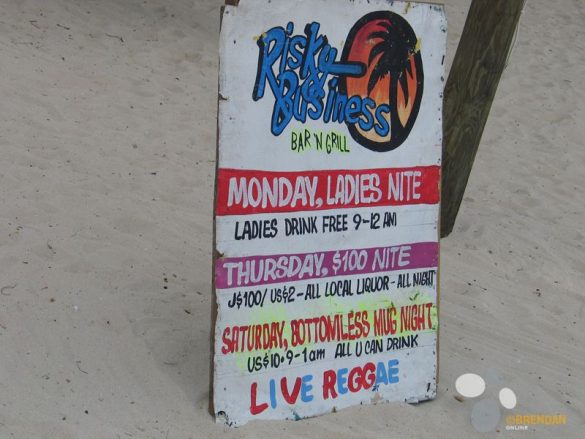 Risky
Business
BAR 'N GRILL
MONDAY, LADIES NITE
LADIES DRINK FREE 9-12 AM
THURSDAY, $100 NITE
J$100/ US$2-ALL LOCAL LIQUOR-ALL NIGHT
SATURDAY, BOTTOMLESS MUG NIGHT
US$10•9-1am ALL U CAN DRINK
LIVE REGGAE
©BRENDAN
ONLINE